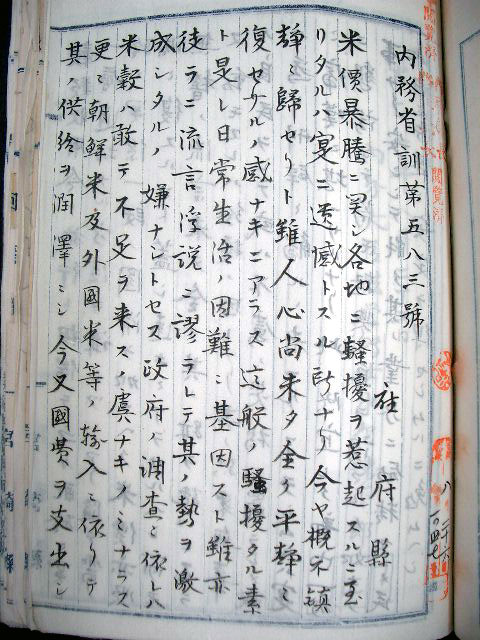 内務省訓第五八三號
在府縣
米價暴騰ニ関シ各地ニ騒擾ヲ惹起スルニ至
リタルハ寔ニ遺憾トスル所ナリ今ヤ概ネ鎮
静ニ歸セリト雖人心尚未タ全ク平静ニ
復セサルノ感ナキニアラス這般ノ騒擾タル素
ト是レ日常生活ノ困難ニ基因スト雖亦
徒ラニ流言浮説ニ謬ラレテ其ノ勢ヲ激
成シタルノ嫌ナシトセス政府ノ調査ニ依レハ
米穀ハ敢テ不足ヲ来スノ虞ナキノミナラス
更ニ朝鮮米及外國米等ノ輸入ニ依リテ
其ノ供給ヲ潤澤ニシ今又國費ヲ支出シ